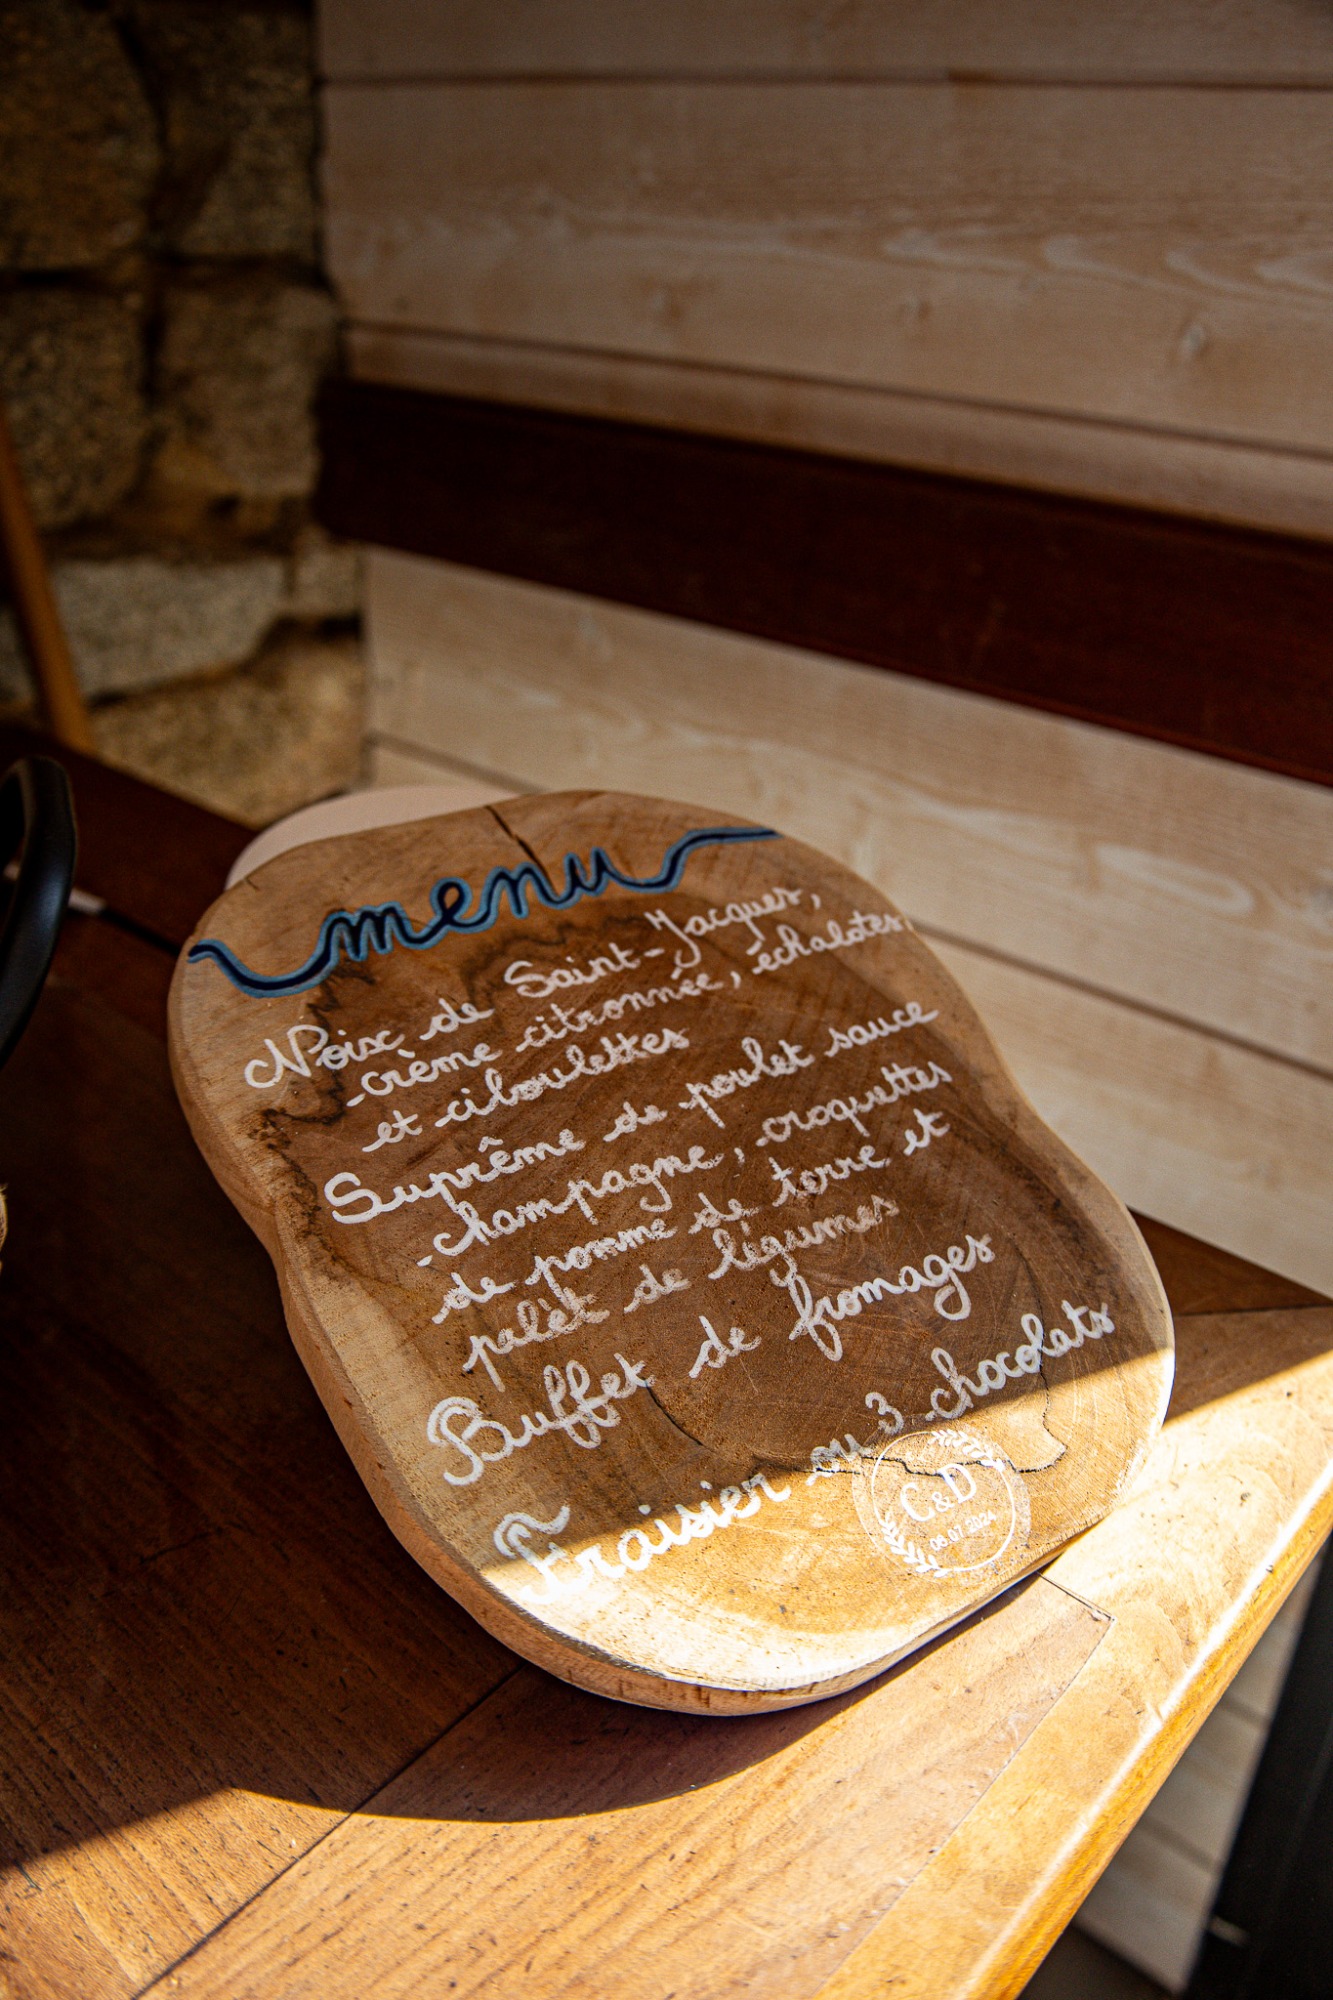 menu
Noix de Saint-Jacques,
crème citronnée, échalotes
et ciboulettes
Suprême de poulet sauce
champagne, croquettes
de pomme de terre et
palèt de légumes
Buffet de fromages
Fraisier ou 3 chocolats
C&D
06.07.2024